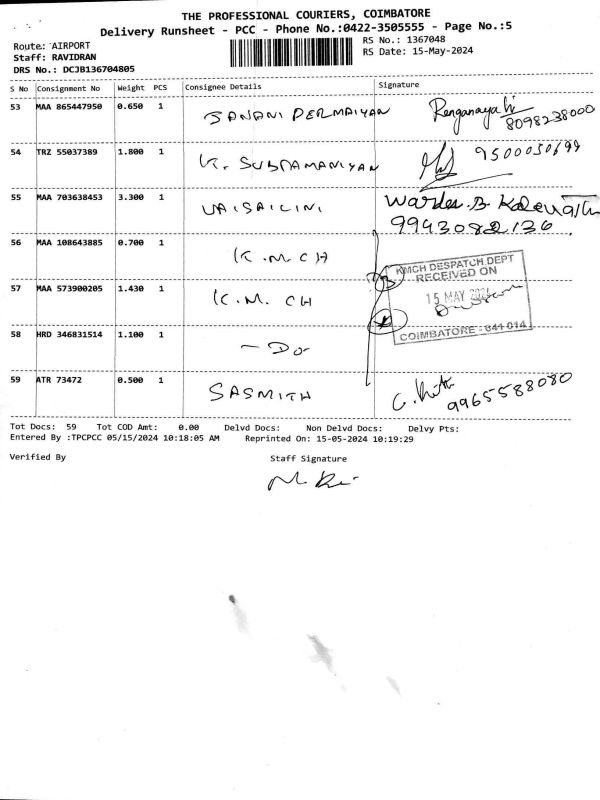 THE PROFESSIONAL COURIERS, COIMBATORE
Delivery Runsheet - PCC - Phone No.:0422-3505555 - Page No.:5
Route: AIRPORT
RS No.: 1367048
Staff: RAVIDRAN
RS Date: 15-May-2024
DRS No.: DCJB136704805
S No Consignment No Weight PCS Consignee Details Signature
53 MAA 865447950 0.650 1 JANANI PERMAIYAN
8098238000
54 TRZ 55037389 1.800 1 K. SUBRAMANIYAN
55 MAA 703638453 3.300 1 VAISAILINI
9943082136
56 MAA 108643885 0.700 1 K.M CH
KMCH DESPATCH DEPT
RECEIVED ON
57 MAA 573900205 1.430 1 K.M. CH
15 MAY 2024
COIMBATORE - 641 014
58 HRD 346831514 1.100 1 - Do -
59 ATR 73472 0.500 1 SASMITH
9965588080
Tot Docs: 59 Tot COD Amt: 0.00 Delvd Docs: Non Delvd Docs: Delvy Pts:
Entered By :TPCPCC 05/15/2024 10:18:05 AM Reprinted On: 15-05-2024 10:19:29
Verified By Staff Signature